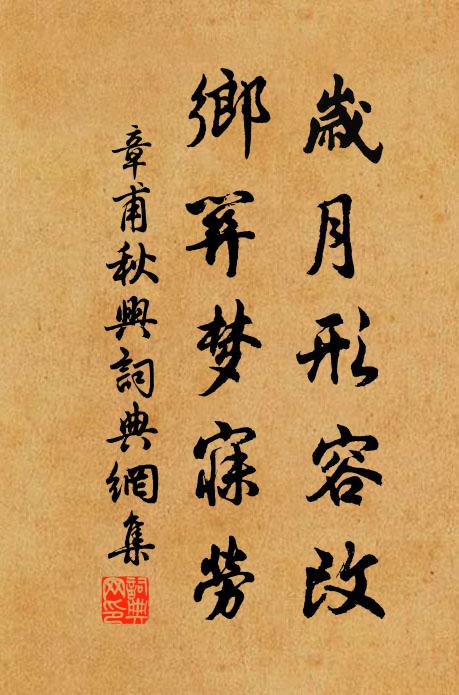 歲月形容改
鄉關夢寐勞
章甫秋興詞典網集
詞典網印